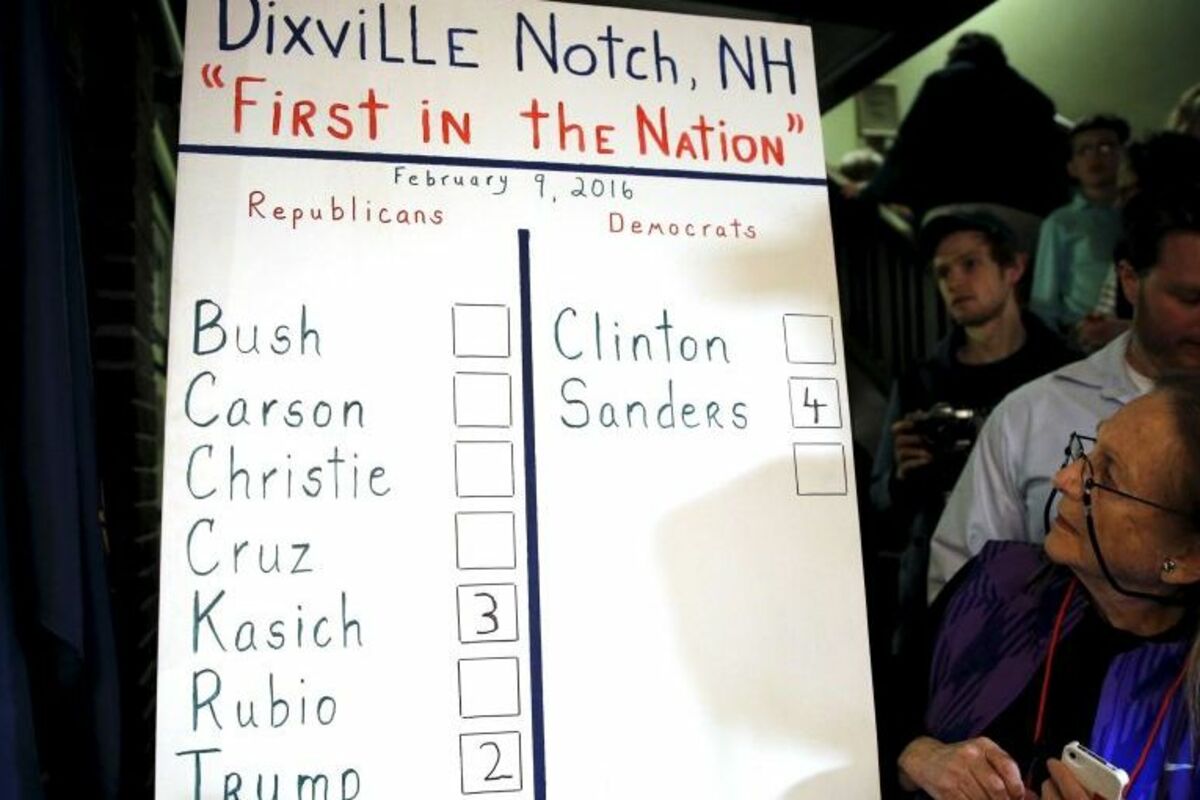 Dixville Notch, NH
"First in the Nation"
February 9, 2016
Republicans
Democrats
Bush
Carson
Christie
Cruz
Kasich 3
Rubio
Trump 2
Clinton
Sanders 4